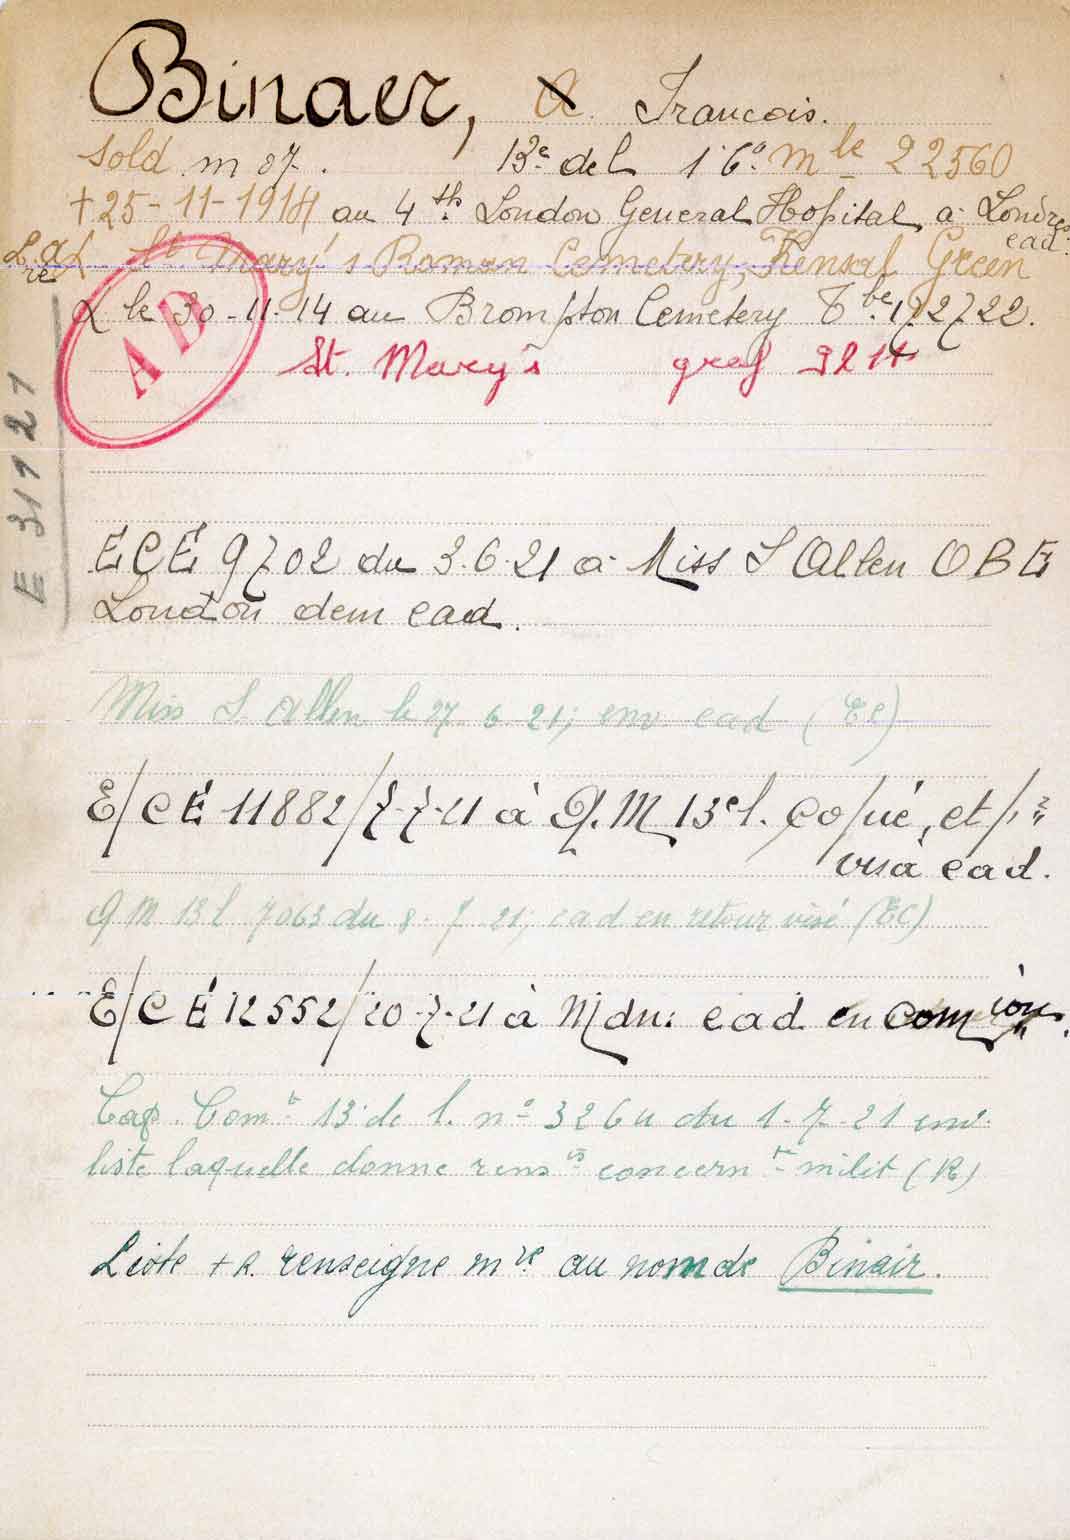 Binaer, A. Francois.
sold. m 07. 13e de l 1.6° mle 22560
+ 25-11-1914 au 4th London General Hopital a Londres
cad.
St Mary's Roman Cemetery, Kensal Green
le 30-11-14 au Brompton Cemetery Tbe. 172722.
AD
St. Mary's graf 9214
E 31121
ECÉ 9702 du 3.6.21 a Miss S Allen OBE
London dem cad.
Miss S. Allen le 27 6.21; env cad (EC)
E/CÉ 11882/7-7-21 à Q.M 13e l. copié, et
visa cad.
QM 13 l 7063 du 8-7 21; cad en retour visé (EC)
E/CÉ 12552/20-7-21 à Mdn: cad en comions.
Cap. Comt 13 de l. n° 326u du 1-7-21 env.
liste laquelle donne rensts concernt milit (R)
Liste + R. renseigne mre au nom de Binair.